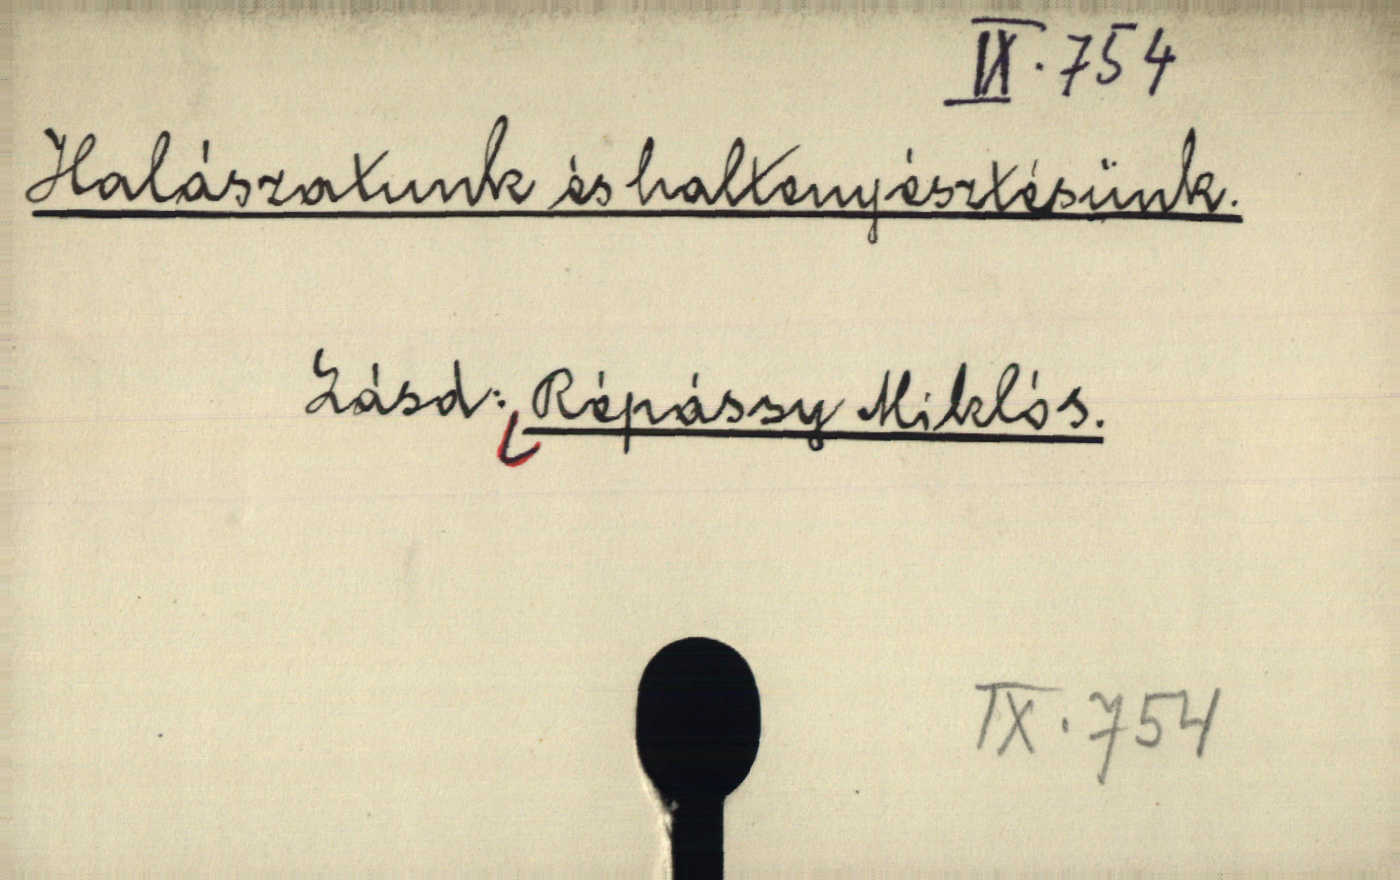 IX. 754
Halászatunk és haltenyésztésünk.
Lásd: Répássy Miklós.
IX. 754